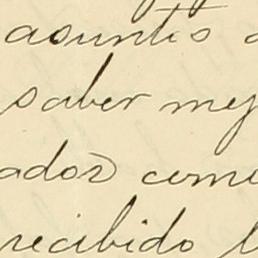 asuntos
saber mej
ador come
recibido l